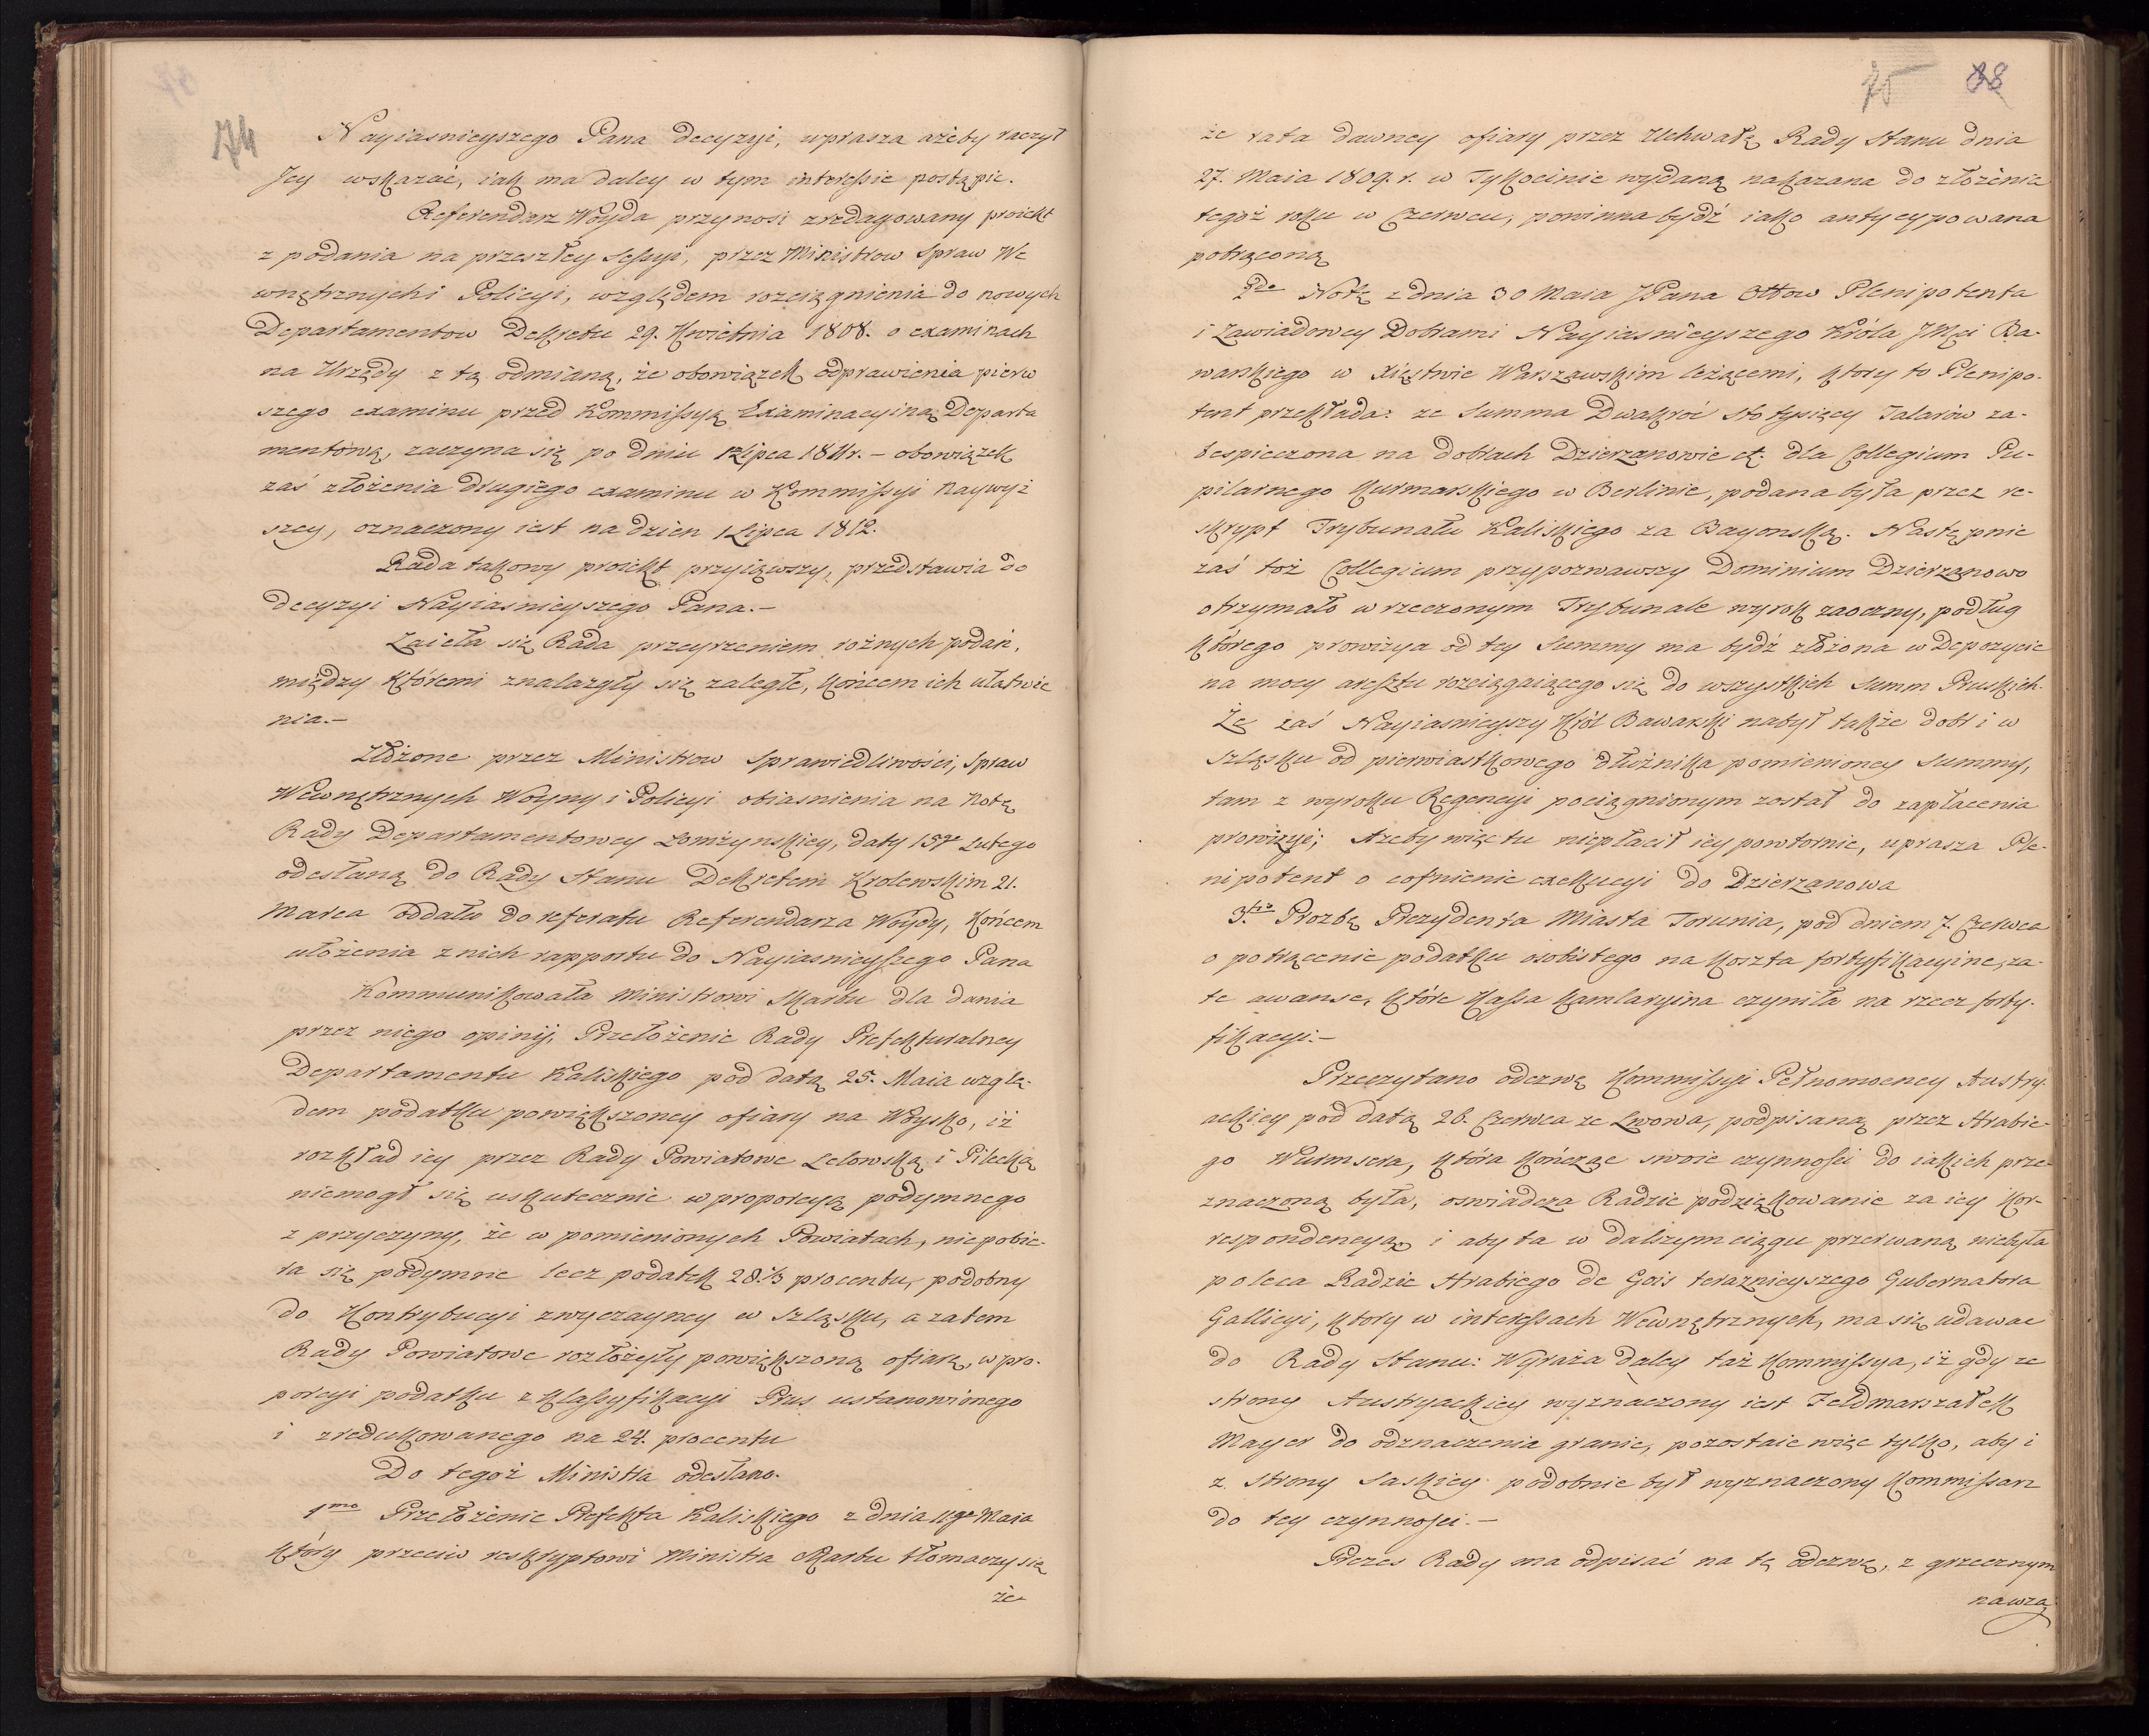 74
Nayiasnieyszego Pana decyzyi, uprasza ażeby raczył
Jey wskazać, iak ma daley w tym interessie postąpic.
Referendarz Woyda przynosi zredagowany proiekt
z podania na przeszłey Sessyi, przez Ministrow Spraw We
wnętrznych i Policyi, względem rozciągnienia do nowych
Departamentow Dekretu 29. Kwietnia 1808. o examinach
na Urzędy z tą odmianą, że obowiązek odprawienia pierw
szego examinu przed Kommissyą Examinacyiną Departa
mentową, zaczyna się po dniu 1 Lipca 1811 r. – obowiązek
zaś złożenia drugiego examinu w Kommissyi Naywyż
szey, oznaczony iest na dzien 1 Lipca 1812.
Rada takowy proiekt przyiąwszy, przedstawia do
decyzyi Nayiasnieyszego Pana.–
Zaieła się Rada przeyrzeniem rożnych podań,
między któremi znalazgły się zaległe, końcem ich ułatwie
nia.–
Złożone przez Ministrow Sprawiedliwości, Spraw
Wewnętrznych Woyny i Policyi obiasnienia na Notę
Rady Departamentowey Łomżynskiey, daty 15go Lutego
odesłaną do Rady Stanu Dekretem Krolewskim 21.
Marca oddało do referatu Referendarza Woydy, końcem
ułożenia z nich rapportu do Nayiasnieyszego Pana
Kommunikowała Ministrowi Skarbu dla dania
przez niego opinij, Przełożenie Rady Prefekturalney
Departamentu Kaliskiego pod datą 25. Maia wzglę-
dem podatku powiększoney ofiary na Woysko, iż
rozkład iey przez Rady Powiatowe Lelowską i Pilecką
niemogł się uskutecznic w proporcyą podymnego
z przyczyny, że w pomienionych Powiatach, nie pobie-
ra się podymne lecz podatek 28 1/3 procentu, podobny
do Kontrybucyi zwyczayney w Szląsku, a zatem
Rady Powiatowe rozłożyły powiększoną ofiarę, w pro-
porcyi podatku z klassyfikacyi Prus ustanowionego
i zredukowanego na 24. procentu
Do tegoż Ministra odesłano.
1mo Przełożenie Prefekta Kaliskiego z dnia 11go Maia
który przeciw reskryptowi Ministra Skarbu tłomaczy się
że
75 38
że rata dawney ofiary przez Uchwałę Rady Stanu dnia
27. Maia 1809. r. w Tykocinie wydaną nakazana do złożenia
tegoż roku w Czerwcu, powinna bydź iako antycypowana
potrąconą
2do Notę z dnia 30 Maia JPana Ottow Plenipotenta
i zawiadowcy Dobrami Nayiasnieyszego Króla JMci Ba-
warskiego w Xięstwie Warszawskim leżącemi, ktory to Plenipo-
tent przekłada: ze Summa Dwakroć sto tysięcy Talarów za-
bespieczona na dobrach Dzierzanowie et. dla Collegium Pu-
pilarnego Kurmarskiego w Berlinie, podana była przez re-
skrypt Trybunału Kaliskiego za Bayonską. Następnie
zaś toż Collegium przypozwawszy Dominium Dzierzanowo
otrzymało w rzeczonym Trybunale wyrok zaoczny, podług
którego prowizya od tey Summy ma bydź złożona w Depozycie
na mocy aresztu rozciągaiącego się do wszystkich Summ Pruskich.
Że zaś Nayiasnieyszy Król Bawarski nabył także dobr i w
Szląsku od pierwiastkowego dłużnika pomienioney Summy,
tam z wyroku Regencyi pociągnionym został do zapłacenia
prowizyi; Azeby więc tu niepłacił iey powtornie, uprasza Ple-
nipotent o cofnienie exekucyi do Dzierzanowa
3tio Prozbę Prezydenta Miasta Torunia, pod dniem 7. Czerwca
o potrącenie podatku osobistego na koszta fortyfikacyine, za-
te awanse, które Kassa Kamlaryina czyniła na rzecz forty-
fikacyi.–
Przeczytano odezwę Kommissyi Pełnomocney Austry-
ackiey pod datą 26. Czerwca ze Lwowa, podpisaną przez Hrabie-
go Wurmsera, która kończąc swoie czynności do iakich prze-
znaczoną była, oswiadcza Radzie podziękowanie za iey kor-
respondencyą i aby ta w dalszym ciągu przerwaną niebyła
poleca Radzie Hrabiego de Goës teraznieyszego Gubernatora
Gallicyi, ktory w interessach Wewnętrznych, ma się udawac
do Rady Stanu: Wyraża daley taż Kommissya, iż gdy ze
strony Austryackiey wyznaczony iest Feldmarszałek
Mayer do odznaczenia granic, pozostaie więc tylko, aby i
z strony Saskiey podobnie był wyznaczony Kommissarz
do tey czynności.–
Prezes Rady ma odpisać na tę odezwę, z grzecznym
nawza